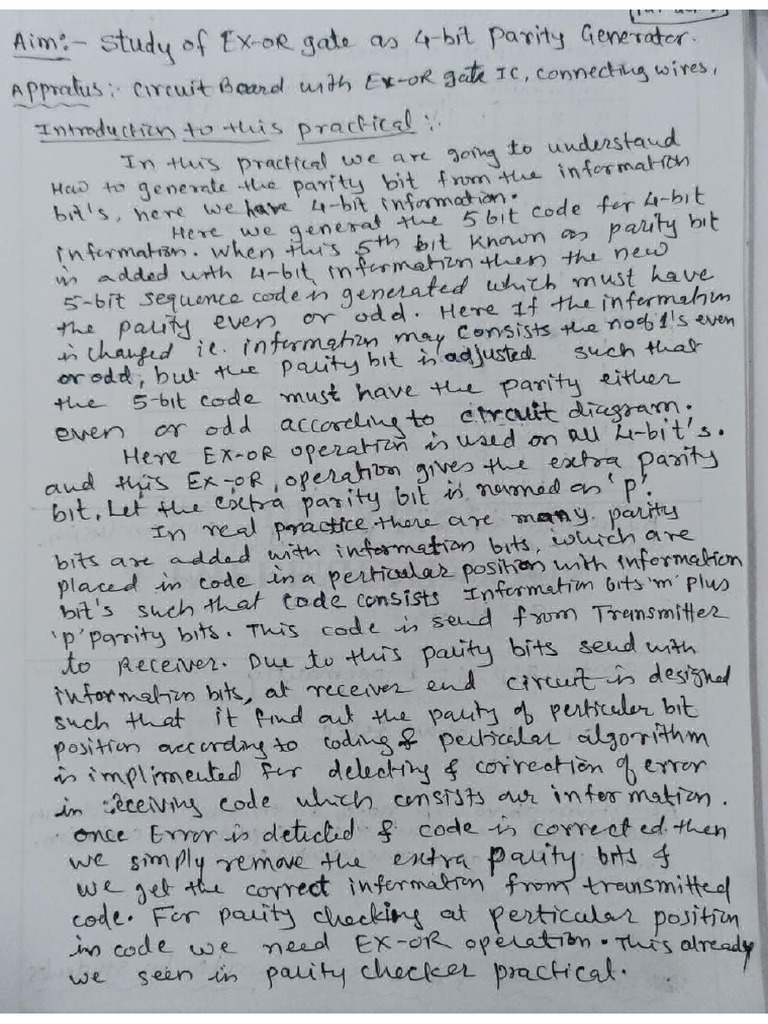 Aim:- Study of EX-OR gate as 4-bit Parity Generator.
Appratus:- Circuit Board with Ex-OR gate IC, connecting wires,
Introduction to this practical:-
In this practical we are going to understand
How to generate the parity bit from the information
bit's, here we have 4-bit information.
Here we general the 5 bit code for 4-bit
information. When this 5th bit known as parity bit
is added with 4-bit information then the new
5-bit sequence code is generated which must have
the parity even or odd. Here If the information
is changed ie. information may consists the no of 1's even
or odd, but the parity bit is adjusted such that
the 5-bit code must have the parity either
even or odd according to circuit diagram.
Here EX-OR operation is used on all 4-bit's.
and this EX-OR, operation gives the extra parity
bit. Let the extra parity bit is named as 'p'.
In real practice there are many parity
bits are added with information bits, which are
placed in code in a perticular position with information
bit's such that code consists Information bits 'm' plus
'p' parity bits. This code is send from Transmitter
to Receiver. Due to this parity bits send with
information bits, at receiver end circuit is designed
such that it find out the parity of perticuler bit
position according to coding & perticular algorithm
is implimented for detecting & correction of error
in receiving code which consists our information.
once Error is detected & code is corrected then
we simply remove the extra parity bits &
we get the correct information from transmitted
code. For parity checking at perticular position
in code we need EX-OR operation. This already
we seen in parity checker practical.